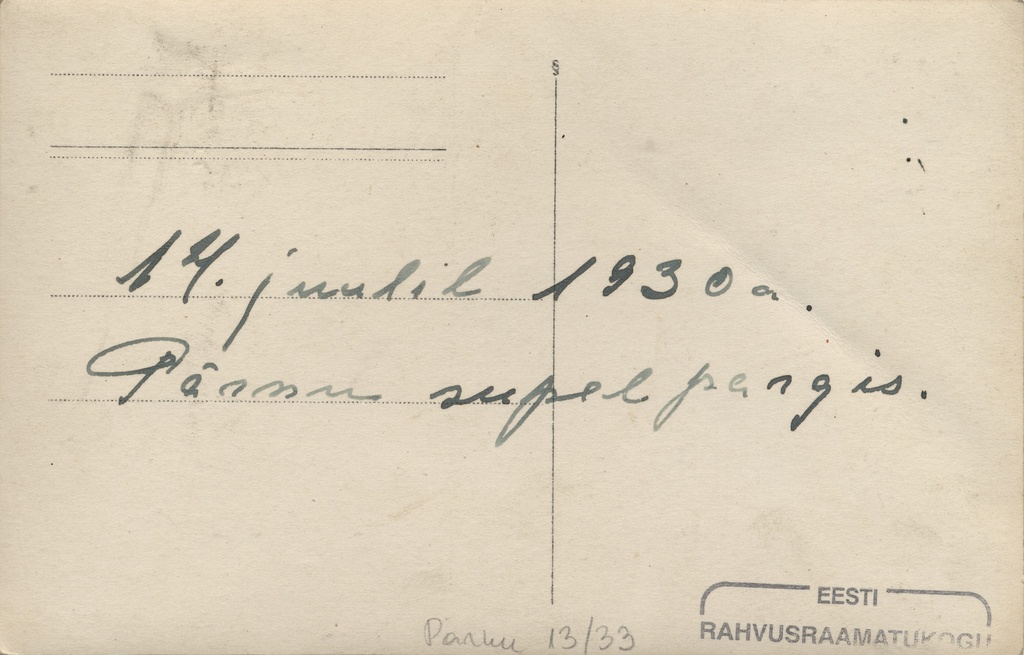 14. juulil 1930 a.
Pärnu supelpargis.
Pärnu 13/33
EESTI
RAHVUSRAAMATUKOGU